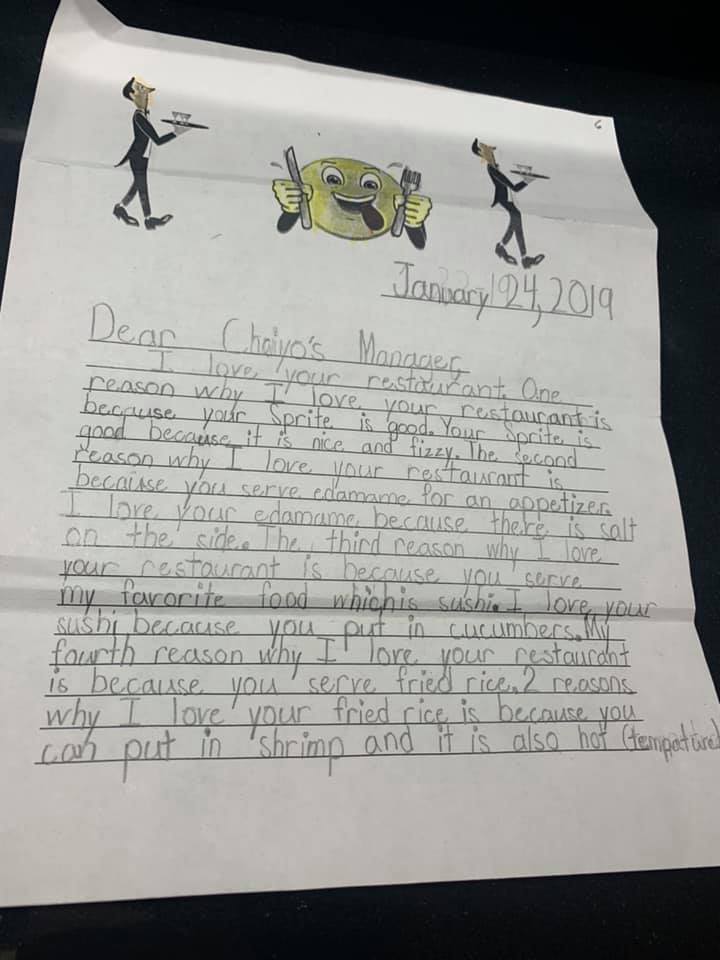 6
January 24, 2019
Dear Chaiyo's Manager,
I love your restaurant. One
reason why I love your restaurant is
because your Sprite is good. Your Sprite is
good because it is nice and fizzy. The second
reason why I love your restaurant is
because you serve edamame for an appetizer.
I love your edamame because there is salt
on the side. The third reason why I love
your restaurant is because you serve
my favorite food which is sushi. I love your
sushi because you put in cucumbers. My
fourth reason why I love your restaurant
is because you serve fried rice. 2 reasons
why I love your fried rice is because you
can put in shrimp and it is also hot (tempature)